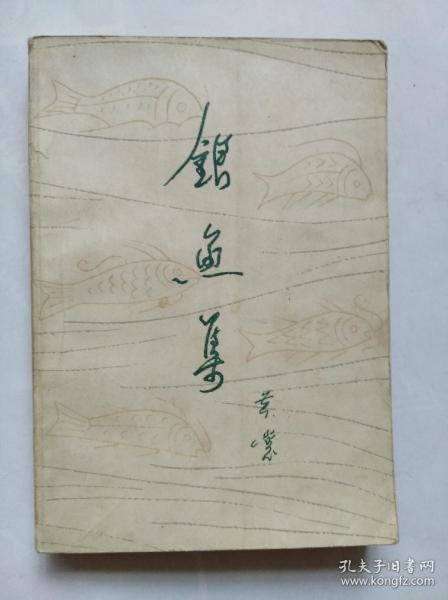 銀魚集
黄裳
孔夫子旧书网
www.kongfz.com